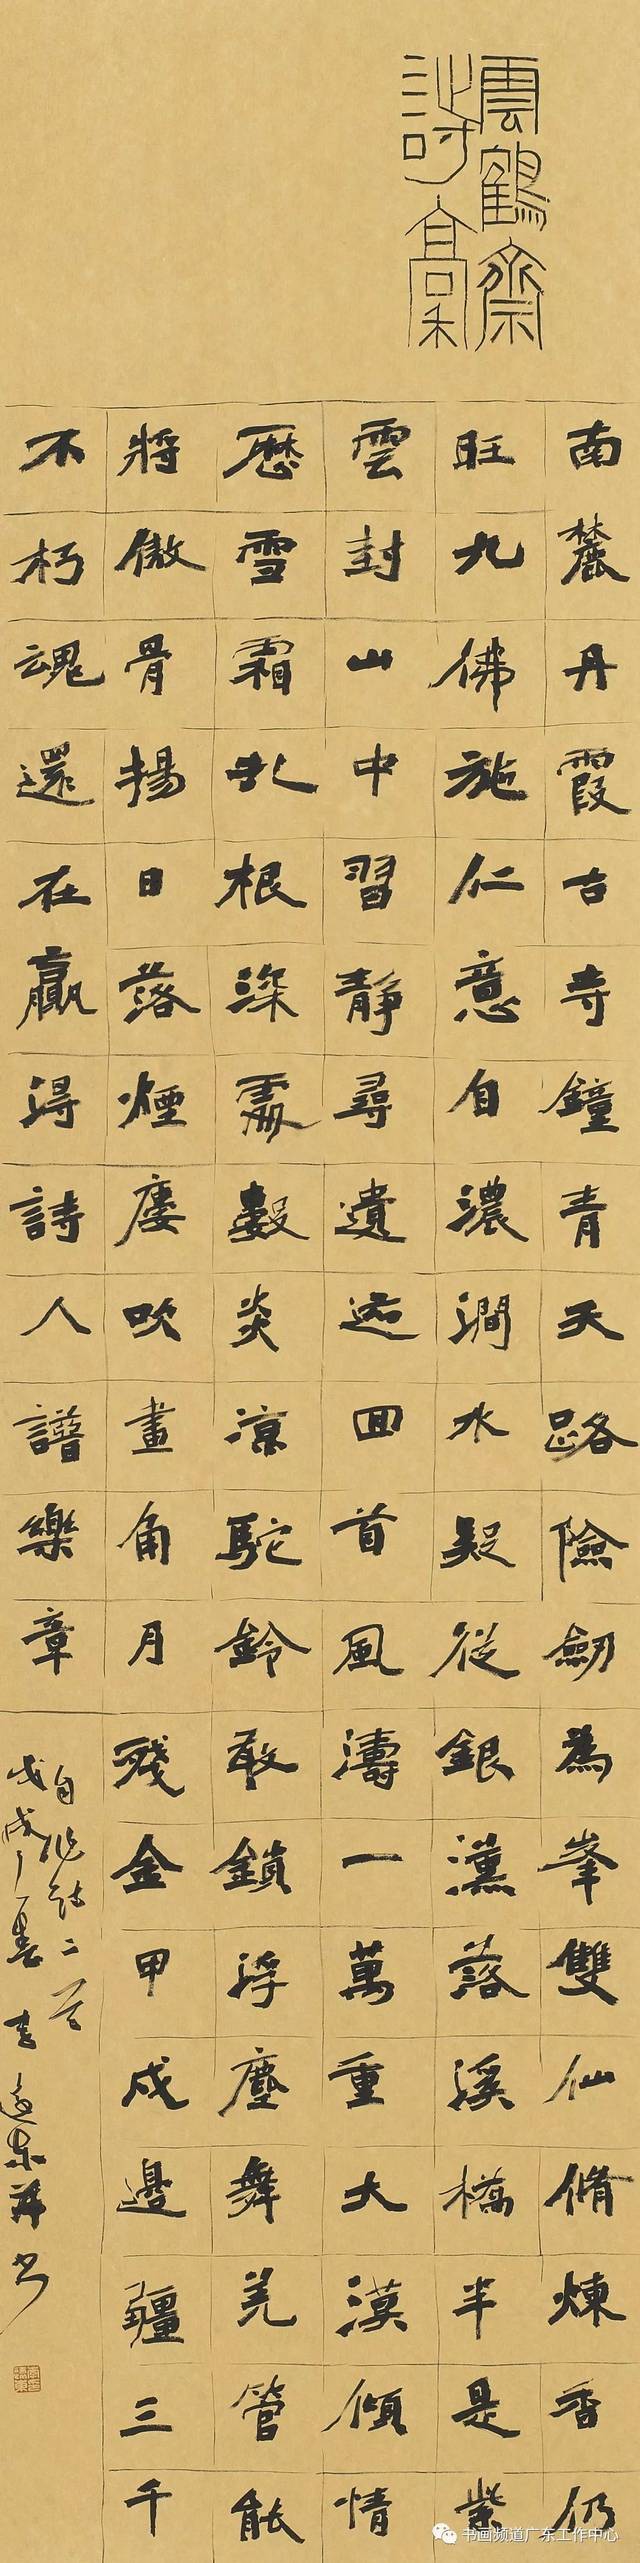 雲鶴齋
詩稾
南麓丹霞古寺鐘青天路險劒為峯雙仙脩煉香仍
旺九佛施仁意自濃澗水疑從銀漢落溪橋半是紫
雲封山中習靜尋遺迹回首風濤一萬重大漠傾情
歷雪霜扎根深處數炎涼駝鈴敢鎖浮塵舞羌管能
將傲骨揚日落煙廔吹畫角月殘金甲戍邊疆三千
不朽魂還在贏得詩人譜樂章
自作詩二首
戊戌春李遠東并書
书画频道广东工作中心